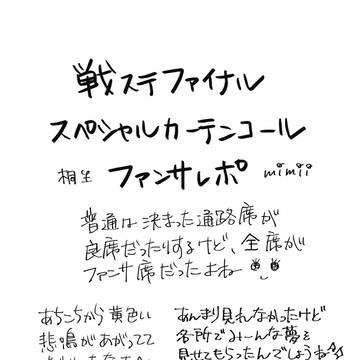 戦ステファイナル
スペシャルカーテンコール
桐生 ファンサレポ mimii
普通は決まった通路席が
良席だったりするけど、全席が
ファンサ席だったよね
あちこちから黄色い
悲鳴があがってて
あんまり見れなかったけど
各所でみーんな夢を
見せてもらったんでしょうね